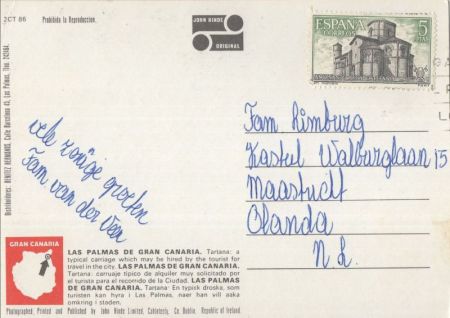 2CT 86
Prohibida la Reproduccion.
JOHN HINDE
ORIGINAL
ESPAÑA
CORREOS
5
PTAS
vele zonige groeten
Fam van der Ven
Fam Limburg
Kastel Walburglaan 15
Maastricht
Olanda
N L.
GRAN CANARIA
LAS PALMAS DE GRAN CANARIA. Tartana: a
typical carriage which may be hired by the tourist for
travel in the city. LAS PALMAS DE GRAN CANARIA.
Tartana: carruaje típico de alquiler muy solicitado por
el turista para el recorrido de la Ciudad. LAS PALMAS
DE GRAN CANARIA. Tartana: En typisk droska, som
turisten kan hyra i Las Palmas, naer han vill aaka
omkring i staden.
Photographed, Printed and Published by John Hinde Limited, Cabinteely, Co. Dublin, Republic of Ireland
Distribuidores: BENITEZ HERMANOS, Calle Barcelona 45, Las Palmas, Tfno.